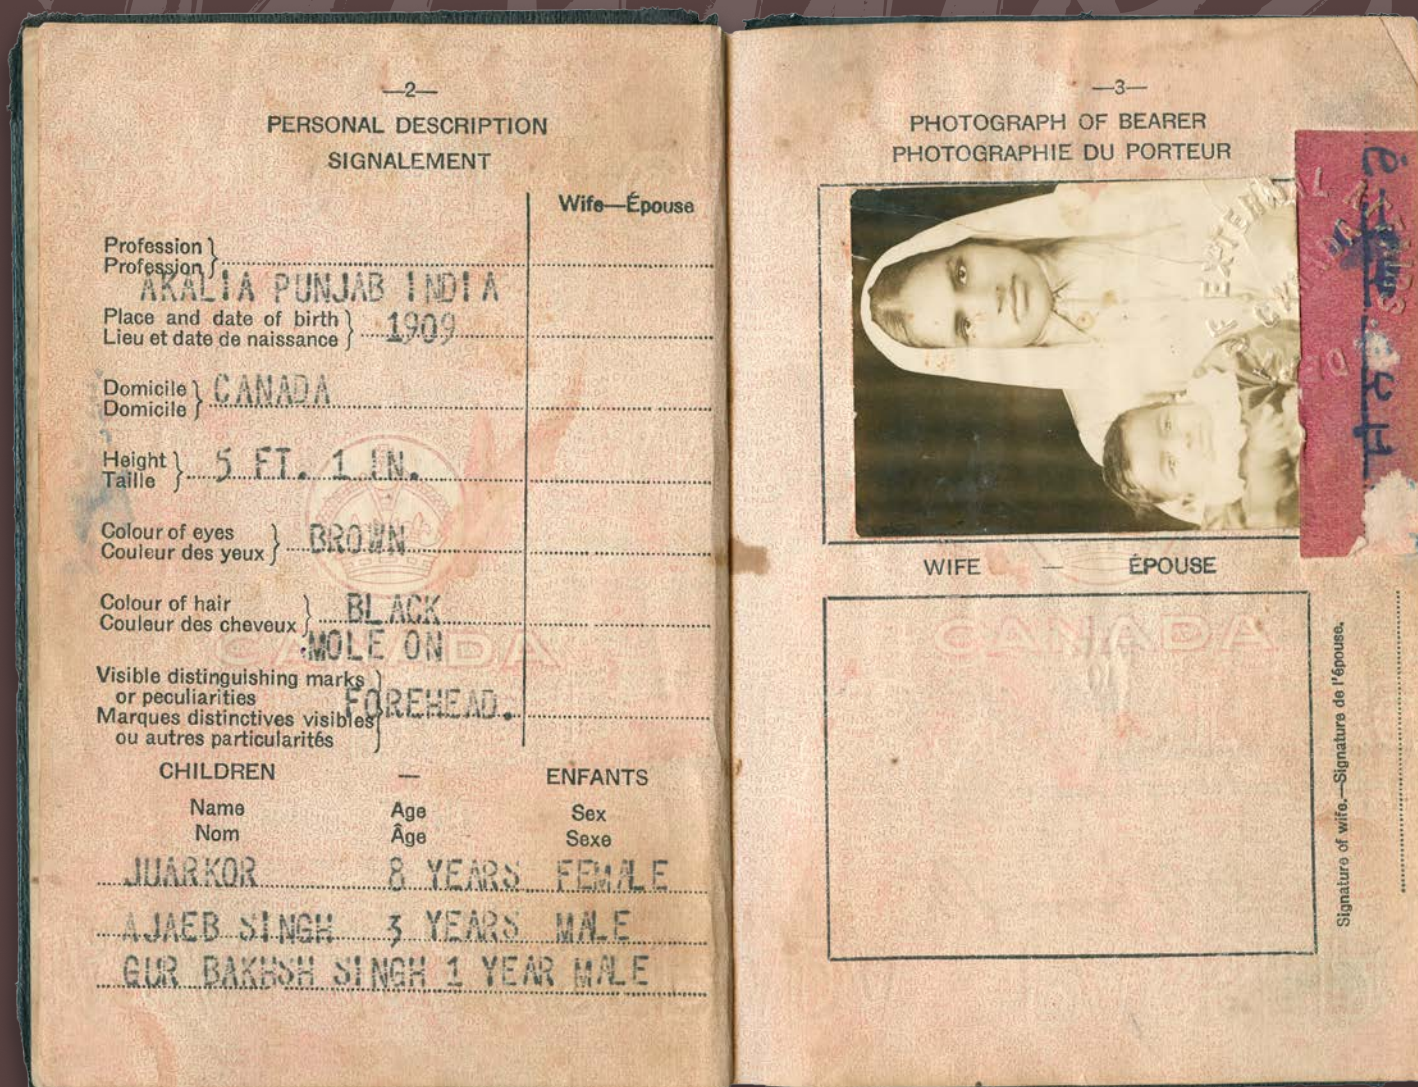 —2—
PERSONAL DESCRIPTION
SIGNALEMENT
Wife—Épouse
Profession
Profession
AKALIA PUNJAB INDIA
Place and date of birth
Lieu et date de naissance
1909
Domicile
Domicile
CANADA
Height
Taille
5 FT. 1 IN.
Colour of eyes
Couleur des yeux
BROWN
Colour of hair
Couleur des cheveux
BLACK
MOLE ON
Visible distinguishing marks
or peculiarities
FOREHEAD.
Marques distinctives visibles
ou autres particularités
CANADA
CHILDREN — ENFANTS
Name Age Sex
Nom Âge Sexe
JUARKOR 8 YEARS FEMALE
AJAEB SINGH 3 YEARS MALE
GUR BAKHSH SINGH 1 YEAR MALE
—3—
PHOTOGRAPH OF BEARER
PHOTOGRAPHIE DU PORTEUR
EXTERNAL
CANADA
WIFE — ÉPOUSE
CANADA
Signature of wife.—Signature de l'épouse.